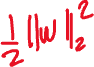 ½ ‖w‖₂²